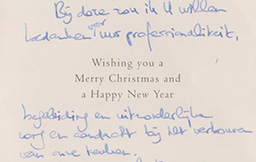 Bij deze zou ik U willen
bedanken voor uw professionaliteit,
Wishing you a
Merry Christmas and
a Happy New Year
begeleiding en uitzonderlijke
zorg en aandacht bij het verbouwen
van onze keuken.